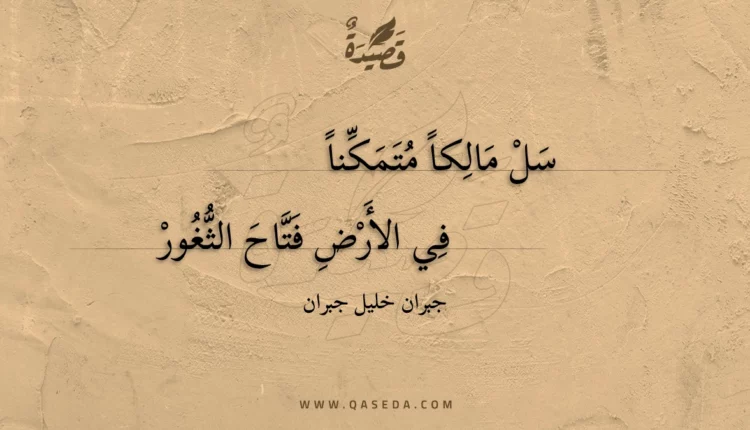 قَصِيْدَةٌ
سَلْ مَالِكاً مُتَمَكِّناً
فِي الأَرْضِ فَتَّاحَ الثُّغُورْ
جبران خليل جبران
WWW.QASEDA.COM